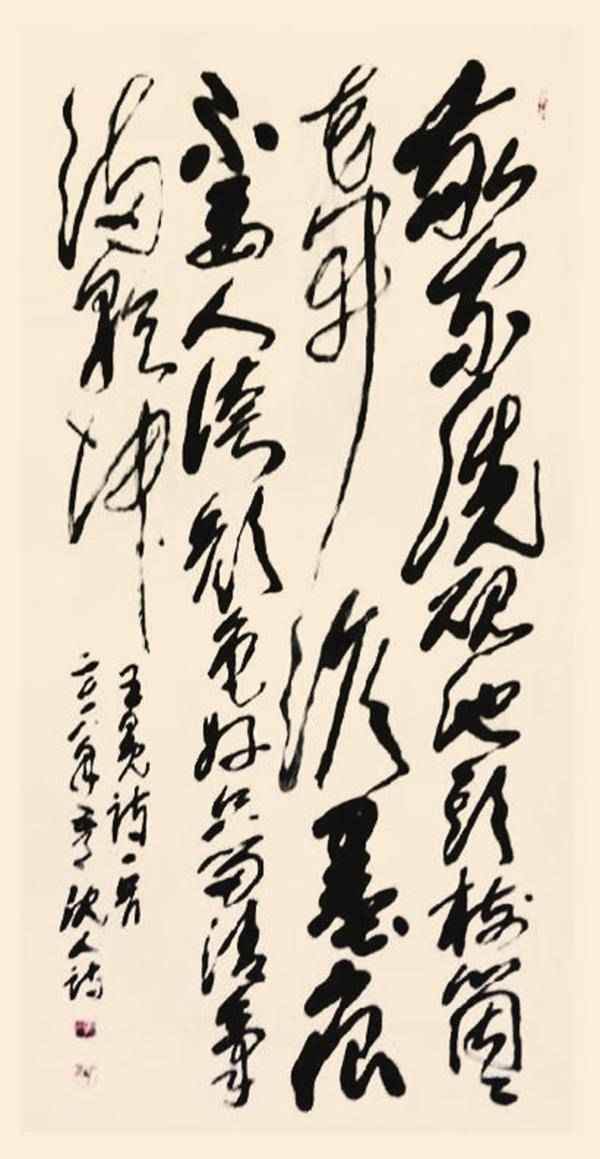 我家洗砚池頭樹箇々
花開淡墨痕
不要人誇颜色好只留清氣
满乾坤
王冕诗一首
二〇一八年 沈人诗